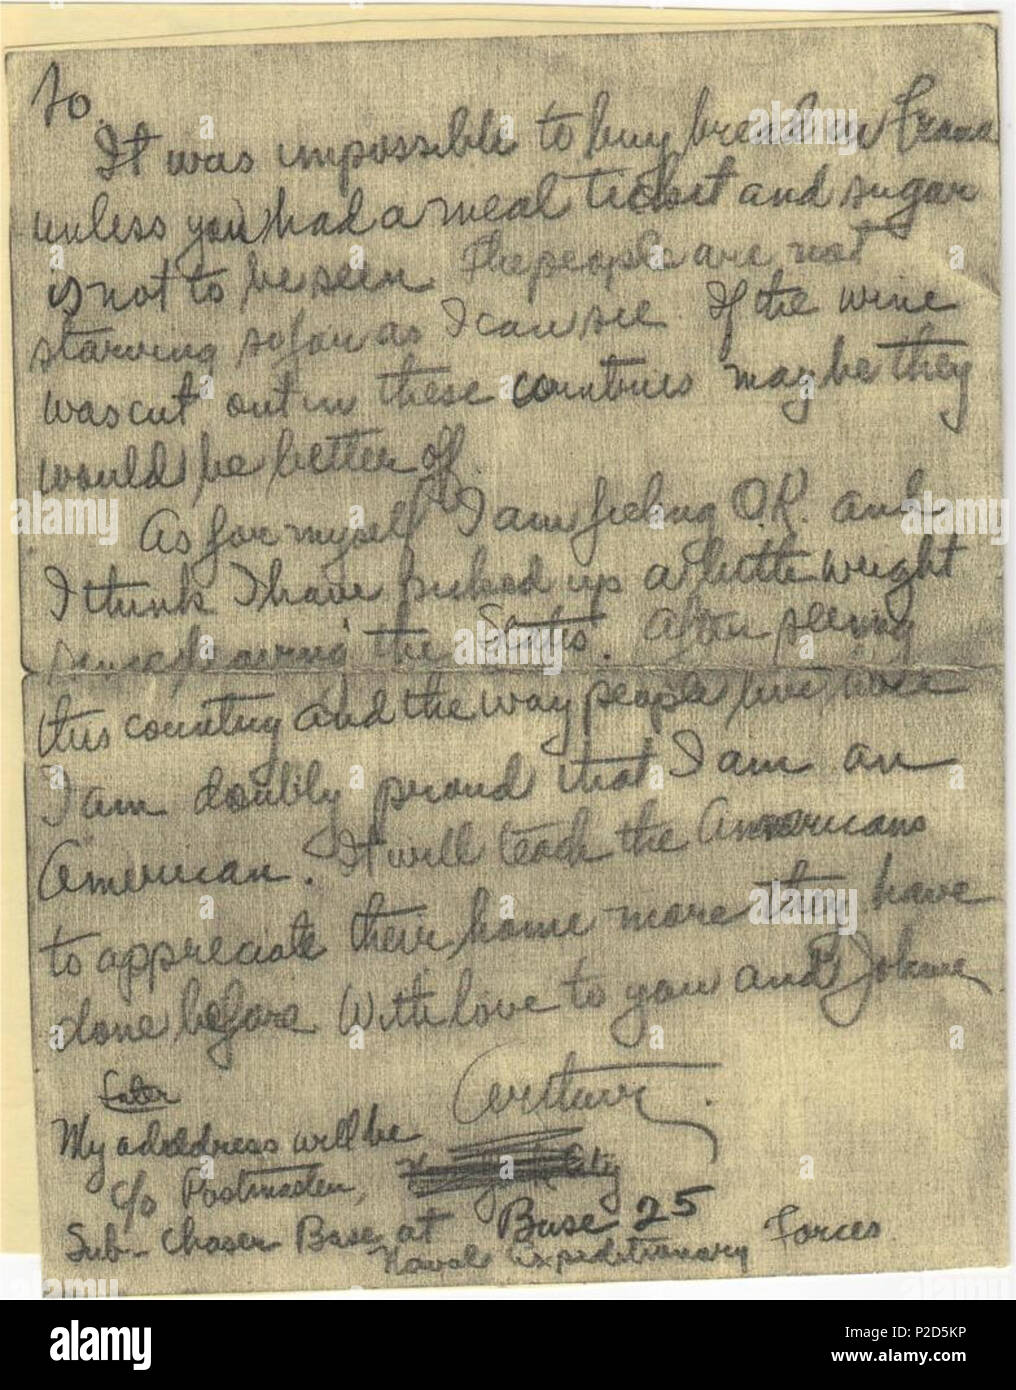 to.
It was impossible to buy bread in France
unless you had a meal ticket and sugar
is not to be seen The people are not
starving so far as I can see. If the wine
was cut out in these countries maybe they
would be better of.
As for myself I am feeling O.K. and
I think I have picked up a little weight
since leaving the States. After seeing
this country and the way people live over
I am doubly proud that I am an
American. It will teach the Americans
to appreciate their home more they have
done before With love to you and
Arthur.
Later
My adddress will be
c/o Postmaster, City
Sub-Chaser Base at Base 25
Naval Expeditionary Forces.
alamy
Image ID: P2D5KP
www.alamy.com